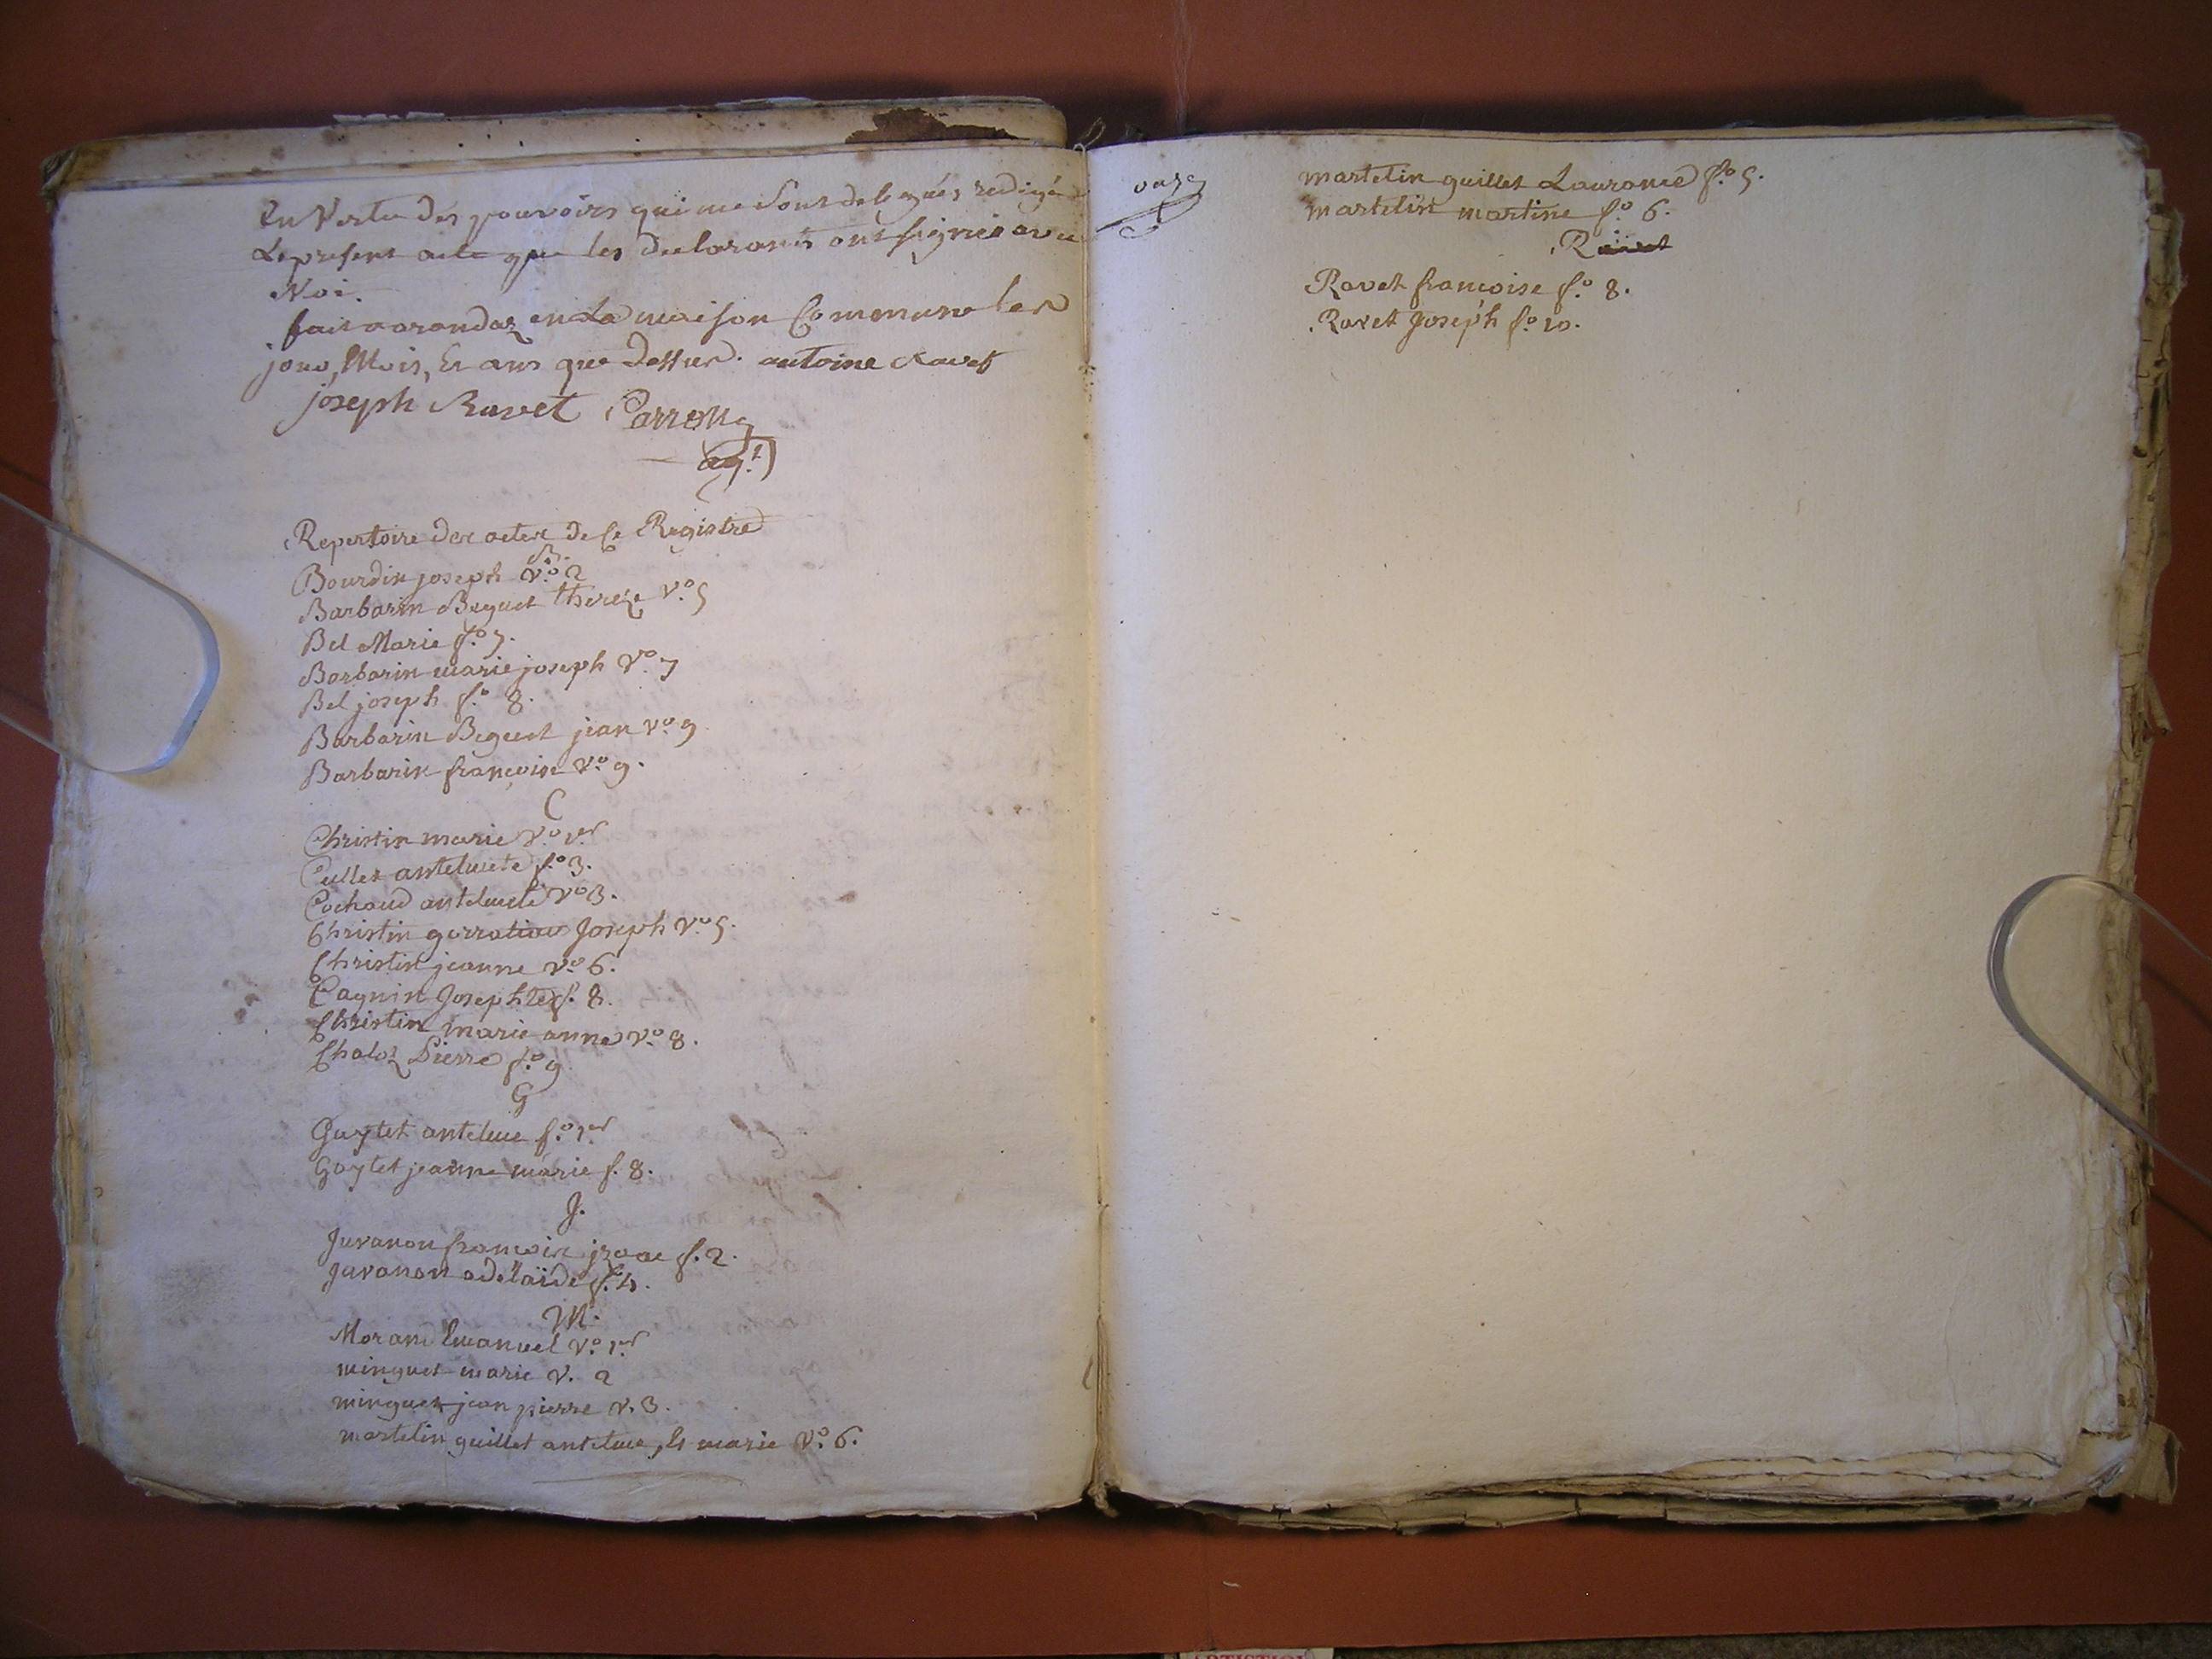 En Vertu des pouvoirs qui me sont delegués redigé
Le present acte que les declarants ont signés avec
Moi.
fait a arandaz en La maison Commune les
jour, Mois, Et ans que dessus. antoine Ravet
joseph Ravet Carron
agt
Repertoire des actes de ce Registre
B.
Bourdin joseph Vo. 2
Barbarin Beguet thereze Vo. 5
Bel Marie fo. 7.
Barbarin marie joseph Vo. 7
Bel joseph fo. 8.
Barbarin Beguet jean Vo. 9
Barbarin françoise Vo. 9.
C
Christin marie Vo. 1er
Cullet antelmete fo. 3.
Cochaud antelmete Vo 3.
Christin gerratiau Joseph Vo. 5.
Christin jeanne Vo. 6.
Cagnin Josephte f. 8.
Christin marie anne Vo. 8.
Chaloz Pierre fo. 9
G
Guytet antelme fo. 1er
Goytet jeanne marie f. 8.
J.
Juvanon francois izaac f. 2.
Juvanon adelaïde f. 4.
M.
Morand Emanuel Vo. 1er
minguet marie V. 2
minguet jean pierre V. 3.
martelin guillet antelme, Et marie Vo. 6.
onze
martelin guillet Laurance fo. 5.
martelin martine fo. 6.
R
Ravet francoise fo. 8.
Ravet Joseph fo. 10.